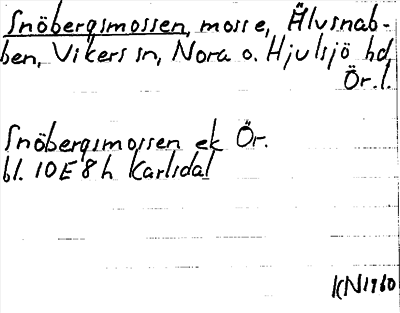 Snöbergsmossen, mosse, Älvsnab-
ben, Vikers sn, Nora o. Hjulsjö hd,
Ör.l.
Snöbergsmossen ek Ör.
bl. 10E8h Karlsdal
KN1960